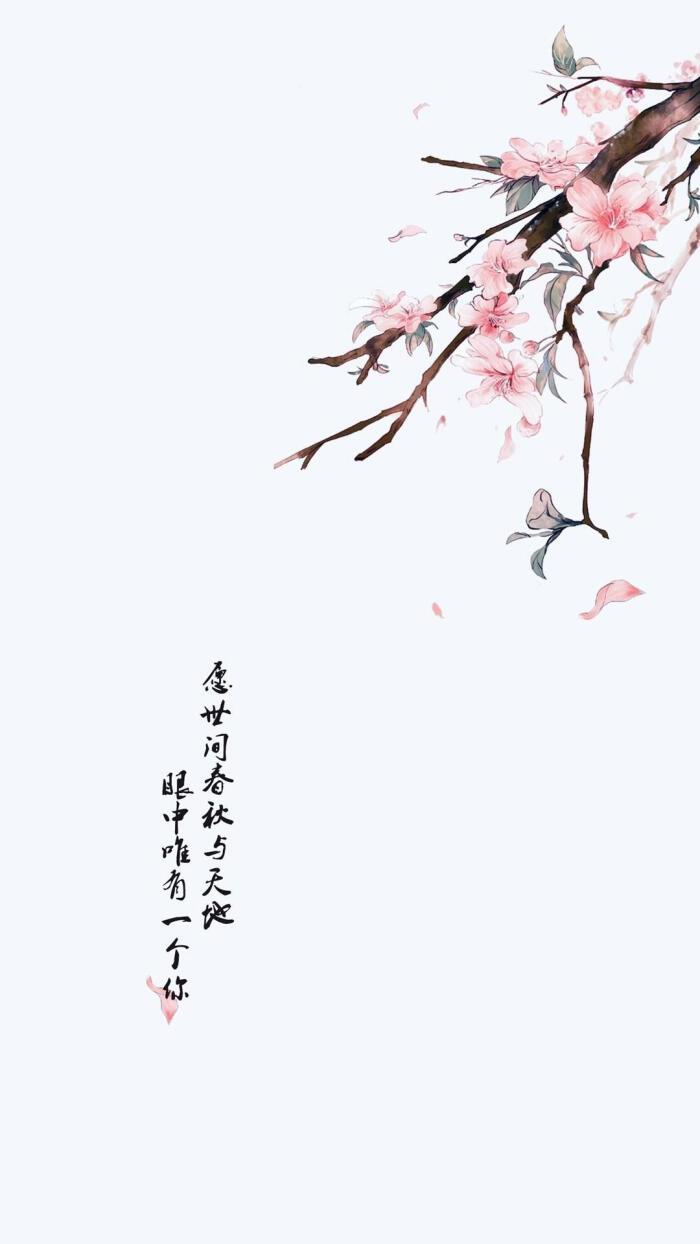 愿世间春秋与天地
眼中唯有一个你